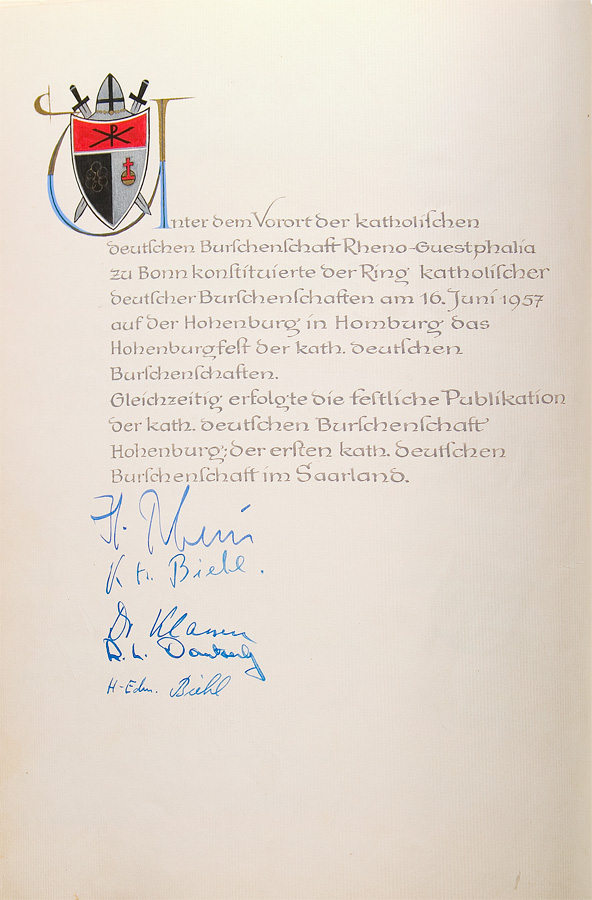 Unter dem Vorort der katholischen
deutschen Burschenschaft Rheno-Guestphalia
zu Bonn konstituierte der Ring katholischer
deutscher Burschenschaften am 16. Juni 1957
auf der Hohenburg in Homburg das
Hohenburgfest der kath. deutschen
Burschenschaften.
Gleichzeitig erfolgte die festliche Publikation
der kath. deutschen Burschenschaft
Hohenburg; der ersten kath. deutschen
Burschenschaft im Saarland.
K H. Biehl.
Dr
R. L.
H-Edm. Biehl